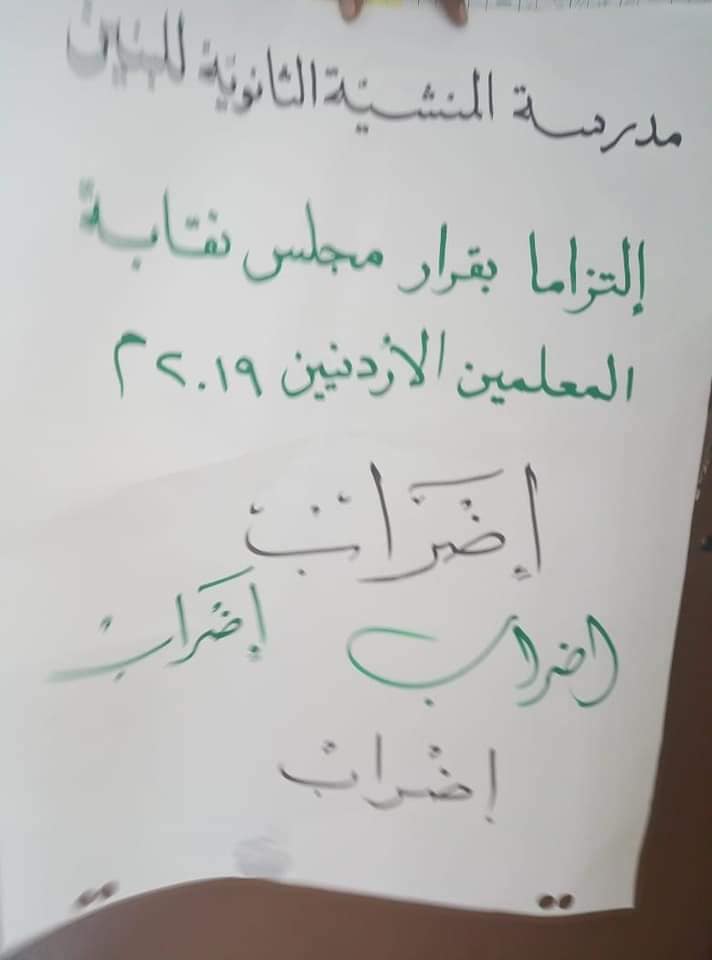 مدرسة المنشية الثانوية للبنين
إلتزاما بقرار مجلس نقابة
المعلمين الأردنيين ٢٠١٩م
إضراب
اضراب إضراب
إضراب